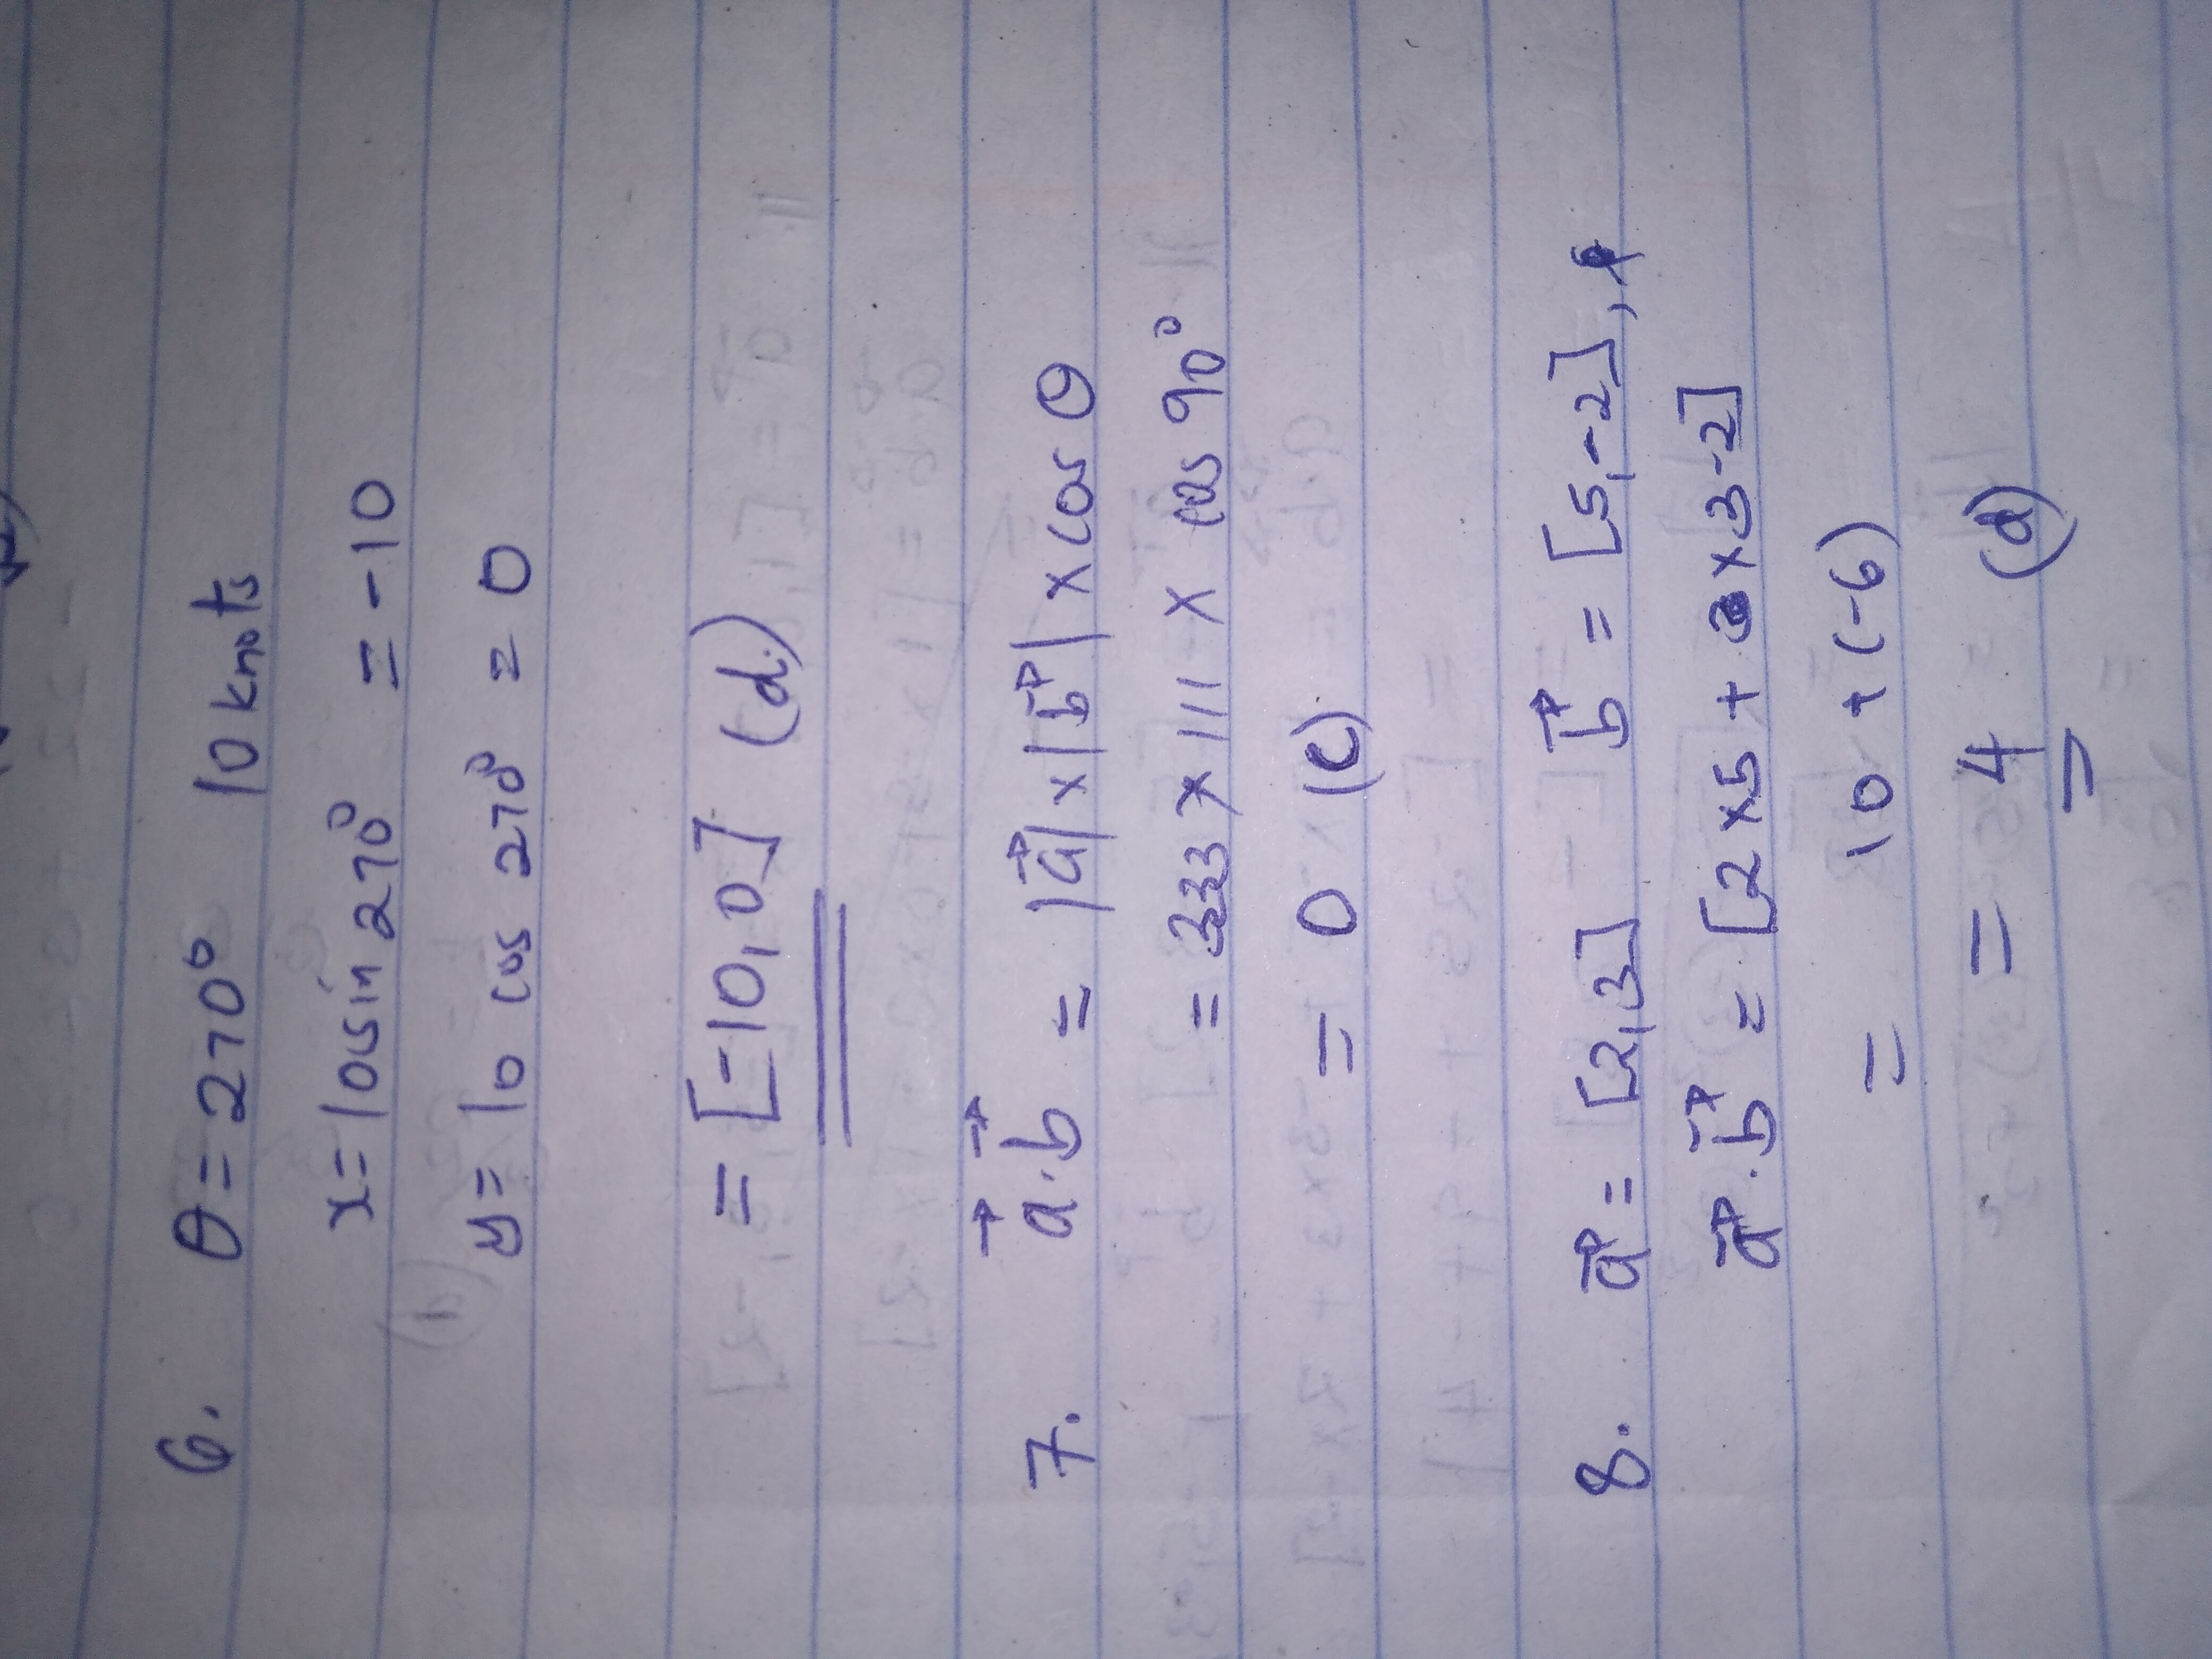 6. θ = 270° 10 knots
x = 10 sin 270° = -10
y = 10 cos 270° = 0
= [-10, 0] (d)
7. a⃗ · b⃗ = |a⃗| × |b⃗| × cos θ
= 333 × 111 × cos 90°
= 0 (c)
8. a⃗ = [2, 3] b⃗ = [5, -2],
a⃗ · b⃗ = [2 × 5 + × 3 -2]
= 10 + (-6)
= 4 (a)